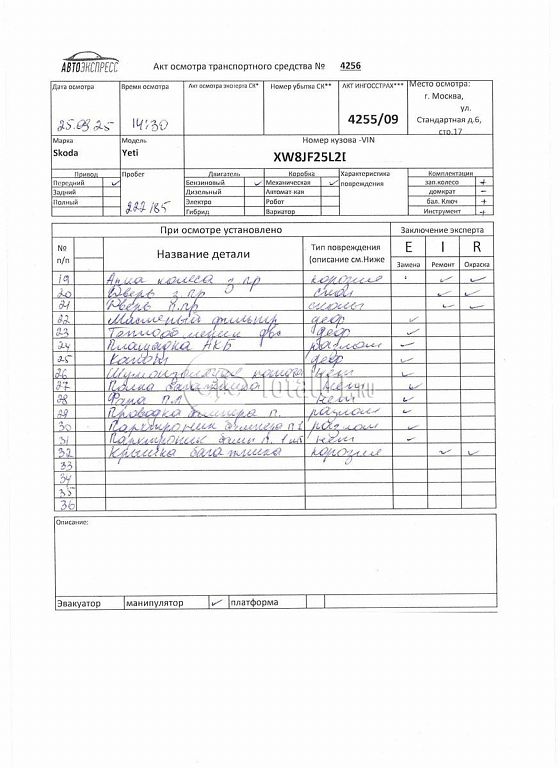 АВТОЭКСПРЕСС
Акт осмотра транспортного средства № 4256
Дата осмотра Время осмотра Акт осмотра эксперта СК* Номер убытка СК** АКТ ИНГОССТРАХ*** Место осмотра:
г. Москва,
ул.
Стандартная д.6,
стр.17
25.09.25 14:30 4255/09
Марка Модель Номер кузова -VIN
Skoda Yeti XW8JF25L2
Привод Пробег Двигатель Коробка Характеристика повреждения Комплектация
Передний ✓ Бензиновый ✓ Механическая ✓ зап.колесо +
Задний Дизельный Автомат кая домкрат -
Полный 227185 Электро Робот бал. Ключ +
Гибрид Вариатор Инструмент +
При осмотре установлено Заключение эксперта
№ п/п Название детали Тип повреждения (описание см.Ниже E I R
Замена Ремонт Окраска
19 Арка колеса з пр коррозия ✓ ✓
20 Дверь з.пр ✓ ✓
21 Дверь п.пр сколы ✓ ✓
22 фильтр деф ✓
23 двс деф ✓
24 Площадка АКБ разлом ✓
25 Капот деф ✓
26 Шумоизоляция капота нет ✓
27 Полка багажника нет ✓
28 Фара п.л нет ✓
29 Проводка бампера п. разлом ✓
30 Парктроник бампера п. разлом ✓
31 Парктроник бамп п. 1 шт нет ✓
32 Крышка багажника коррозия ✓ ✓
33
34
35
36
Описание:
Эвакуатор манипулятор ✓ платформа